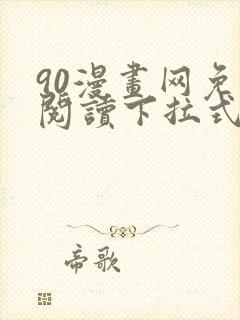 90漫畫网免
閱讀下拉式
帝歌